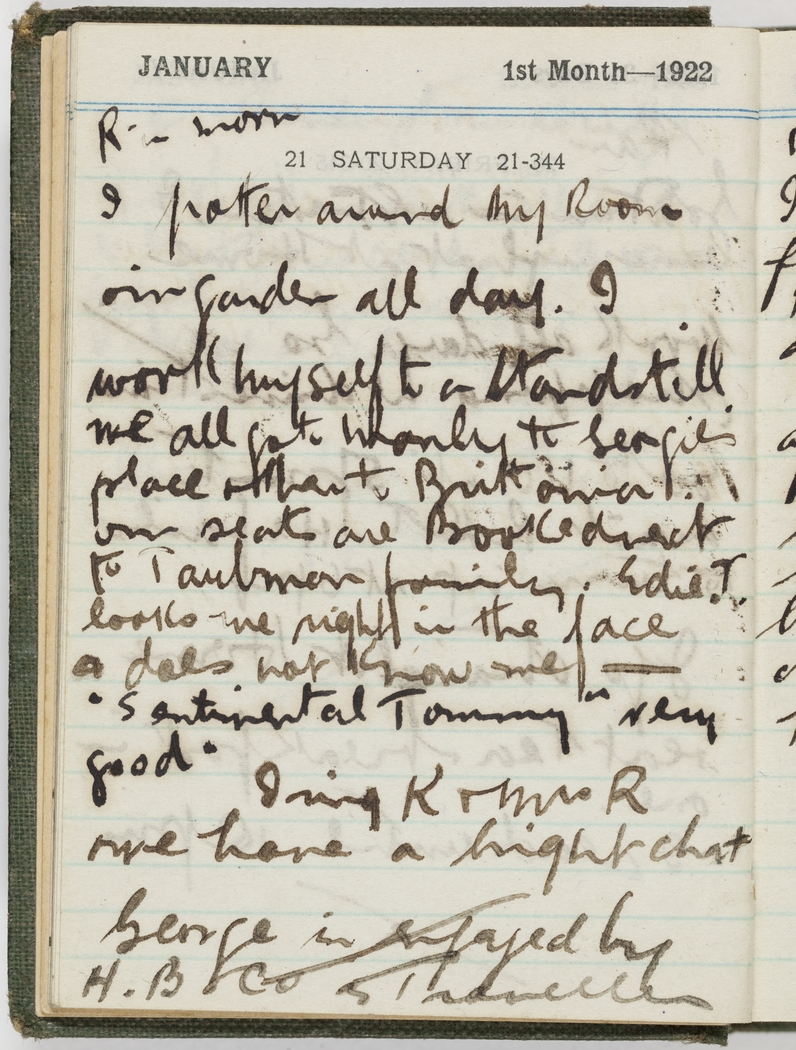 JANUARY 1st Month—1922
R in morn
21 SATURDAY 21-344
I potter around my Room
or in garden all day. I
work myself to a standstill
we all go to Manly to Georgie's
place & then to Brittania.
our seats are Booked next
to Taubman family. Edie T.
looks me right in the face
& does not know me —
"Sentimental Tommy" very
good"
I ring K & Mrs R
we have a bright chat
George is engaged by
H. B & Co as Traveller